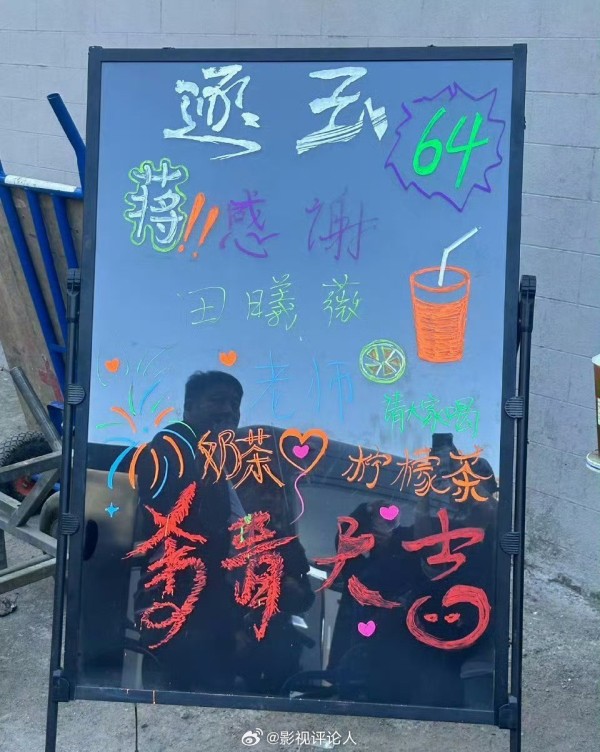 逐玉
64
蒋!!感谢
田曦薇
老师
请大家喝
奶茶 柠檬茶
杀青大吉
@影视评论人